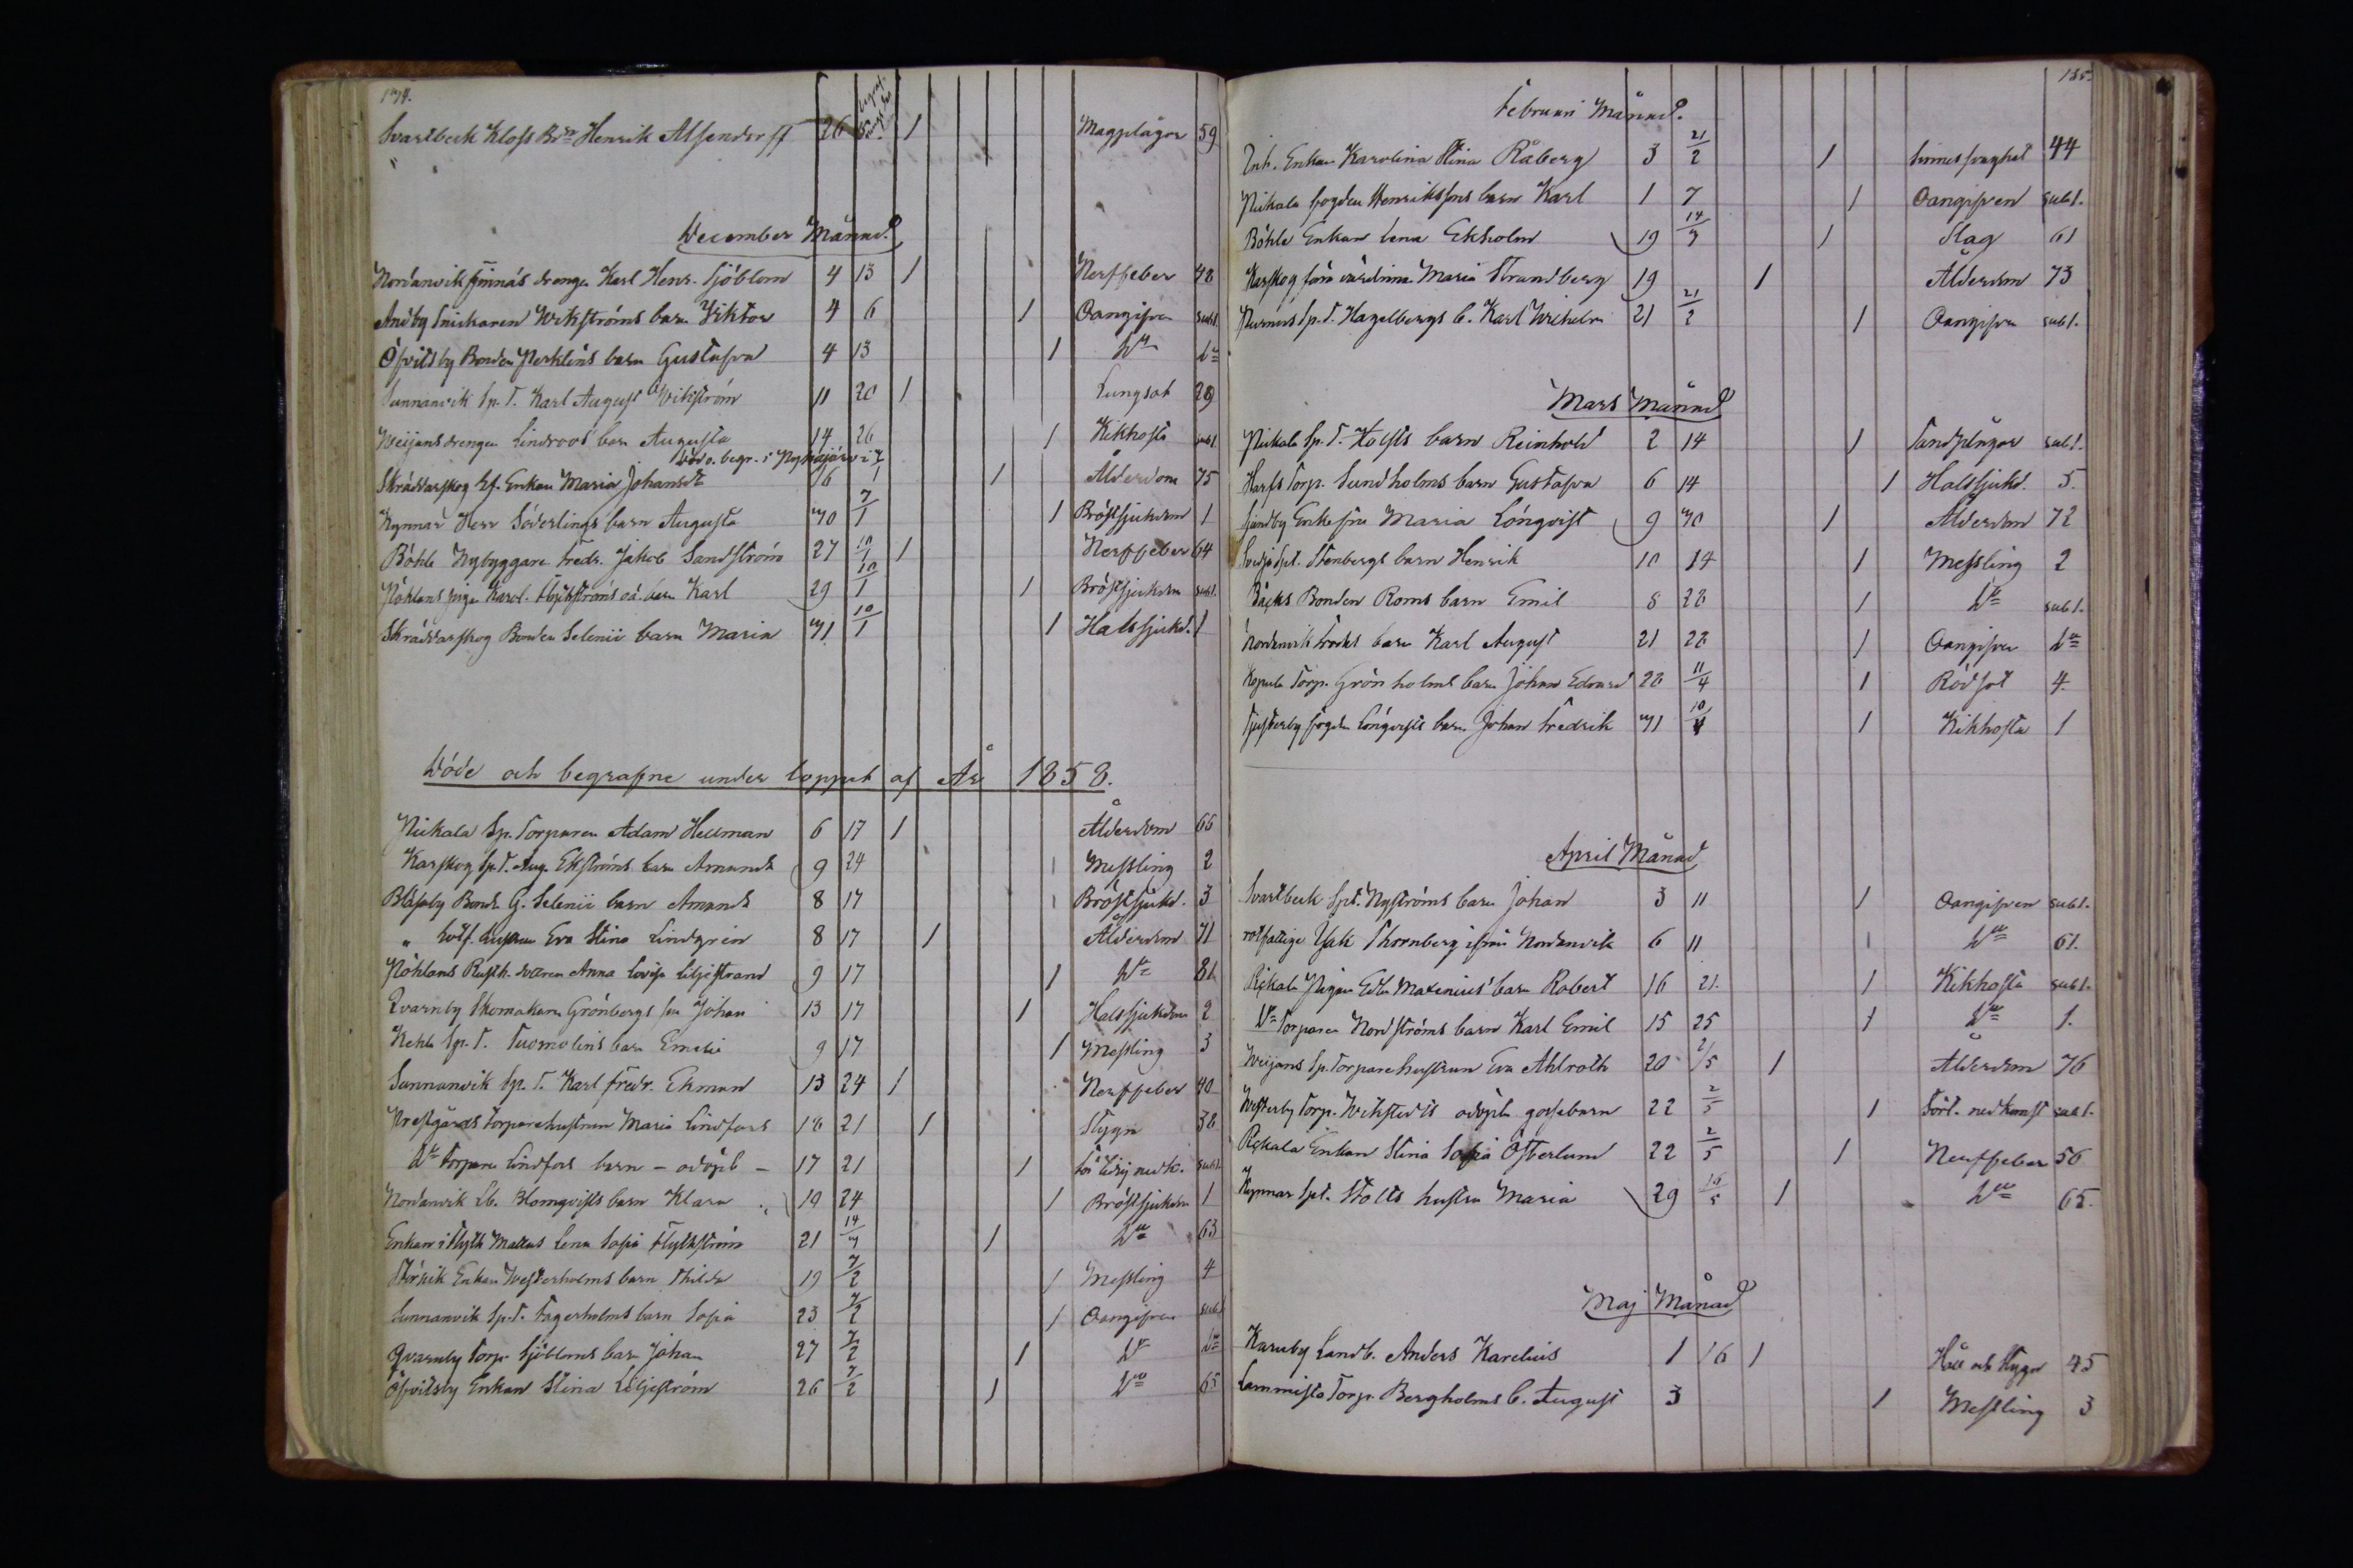 Svartbeck Kloss Bdn Henrik Alfendorff 26 1 Magplågor 59
December Månad
Nordanvik Finnäs drengen Karl Henr. Sjöblom 4 13 1 Nerffeber 48
Andby Snickaren Wikströms barn Viktor 4 6 1 Oangifven sub1.
Öfvitsby Bonden Nerkléns barn Gustafva 4 13 1 Do Do
Sunnanvik Sp. T. Karl August Wikström 11 20 1 Lungsot 29
Weijans drengen Lindroos barn Augusta 14 26 1 Kikhosta sub1
död o. begr. i
Skräddarskog Enkan Maria Johansdr 16 1 1 Ålderdom 75
Kynnar Herr Söderlings barn Augusta 30 7/1 1 Bröstsjukdom 1
Böhle Nybyggare Fredr. Jakob Sandström 27 10/1 1 Nerffeber 64
Nöhlans pigan Karol. Flyktströms oä. barn Karl 29 10/1 1 Bröstsjukdom sub1.
Skräddarskog Bonden Selenii barn Maria 31 10/1 1 Halssjukd. 1
Döde och begrafne under loppet af År 1858.
Nickala Sp. Torparen Adam Hellman 6 17 1 Ålderdom 66
Karskog Sp. T. Aug. Ekströms barn Amanda 9 24 1 Messling 2
Blåsaby Bond. G. Selenii barn Amanda 8 17 1 Bröstsjukd. 3
" hustrun Eva Stina Lindgrén 8 17 1 Ålderdom 71
Nöhlans Rusth. Anna Lovisa Liljestrand 9 17 1 Do 81
Qvarnby Skomakaren Grönbergs son Johan 13 17 1 Halssjukdom 2
Kehla Sp. T. Tuomolins barn Emelie 9 17 1 Messling 3
Sunnanvik Sp. T. Karl Fredr. Ekman 13 24 1 Nerffeber 40
Prestgårds Torparehustrun Maria Lindfors 18 21 1 Stygn 38
Do Torparen Lindfors barn – odöpt – 17 21 1 sub1.
Nordanvik Lb. Blomqvists barn Klara 19 24 1 Bröstsjukdom 1
Enkan i Flyth Mattas Lena Sofia Flythström 21 14/3 1 Do 63
Störsvik Enkan Westerholms barn Thilda 19 7/2 1 Messling 4
Sunnanvik Sp. T. Fagerholms barn Sofia 23 7/2 1 Oangifven sub1
Qvarnby Torp. Sjöbloms barn Johan 27 7/2 1 Do Do
Öfvitsby Enkan Stina Liljeström 26 7/2 1 Do 65
135.
Februari Månad.
Inh. Enkan Karolina Stina Råberg 3 21/2 1 Sinnessvaghet 44
Nickala fogden Henrikssons barn Karl 1 7 1 Oangifven sub1.
Böhle Enkan Lena Ekholm 19 14/3 1 Slag 61
Karskog Maria Strandberg 19 1 Ålderdom 73
Sp. T. Hagelbergs b. Karl Wilhelm 21 21/2 1 Oangifven sub1.
Mars Månad
Nickala Sp. T. Holsts barn Reinhold 2 14 1 Tandplågor sub1.
Torp. Sundholms barn Gustafva 6 14 1 Halssjukd. 5.
Sundby Enkefru Maria Lönqvist 9 30 1 Ålderdom 72
Stenbergs barn Henrik 10 14 1 Messling 2
Bäcks Bonden Roms barn Emil 8 28 1 Do sub1.
Nordanvik barn Karl August 21 28 1 Oangifven Do
Torp. Grönholms barn Johan Edvard 28 11/4 1 Rödsot 4.
Tjusterby fogden Lönqvists barn Johan Fredrik 31 10/4 1 Kikhosta 1
April Månad
Svartbeck Spt. Nyströms barn Johan 3 11 1 Oangifven sub1.
rotfattige Isak Thornberg ifrån Nordanvik 6 11 1 Do 61.
Rickala Pigan Maxenius' barn Robert 16 21. 1 Kikhosta sub1.
Do Torparen Nordströms barn Karl Emil 15 25 1 Do 1.
Weijans Sp. Torparehustrun Eva Ahlroth 20 2/5 1 Ålderdom 76
Westerby Torp. Wikstedts odöpta gossebarn 22 2/5 1 Sört. nedkomst sub1.
Rickala Enkan Stina Sofia Österlund 22 2/5 1 Nerffeber 56
Kynnar Spt. Stolts hustru Maria 29 16/5 1 Do 65.
Maj Månad
Karuby Landb. Anders Karelius 1 16 1 Håll och Stygn 45
Lammista Torp. Bergholms b. August 3 1 Messling 3